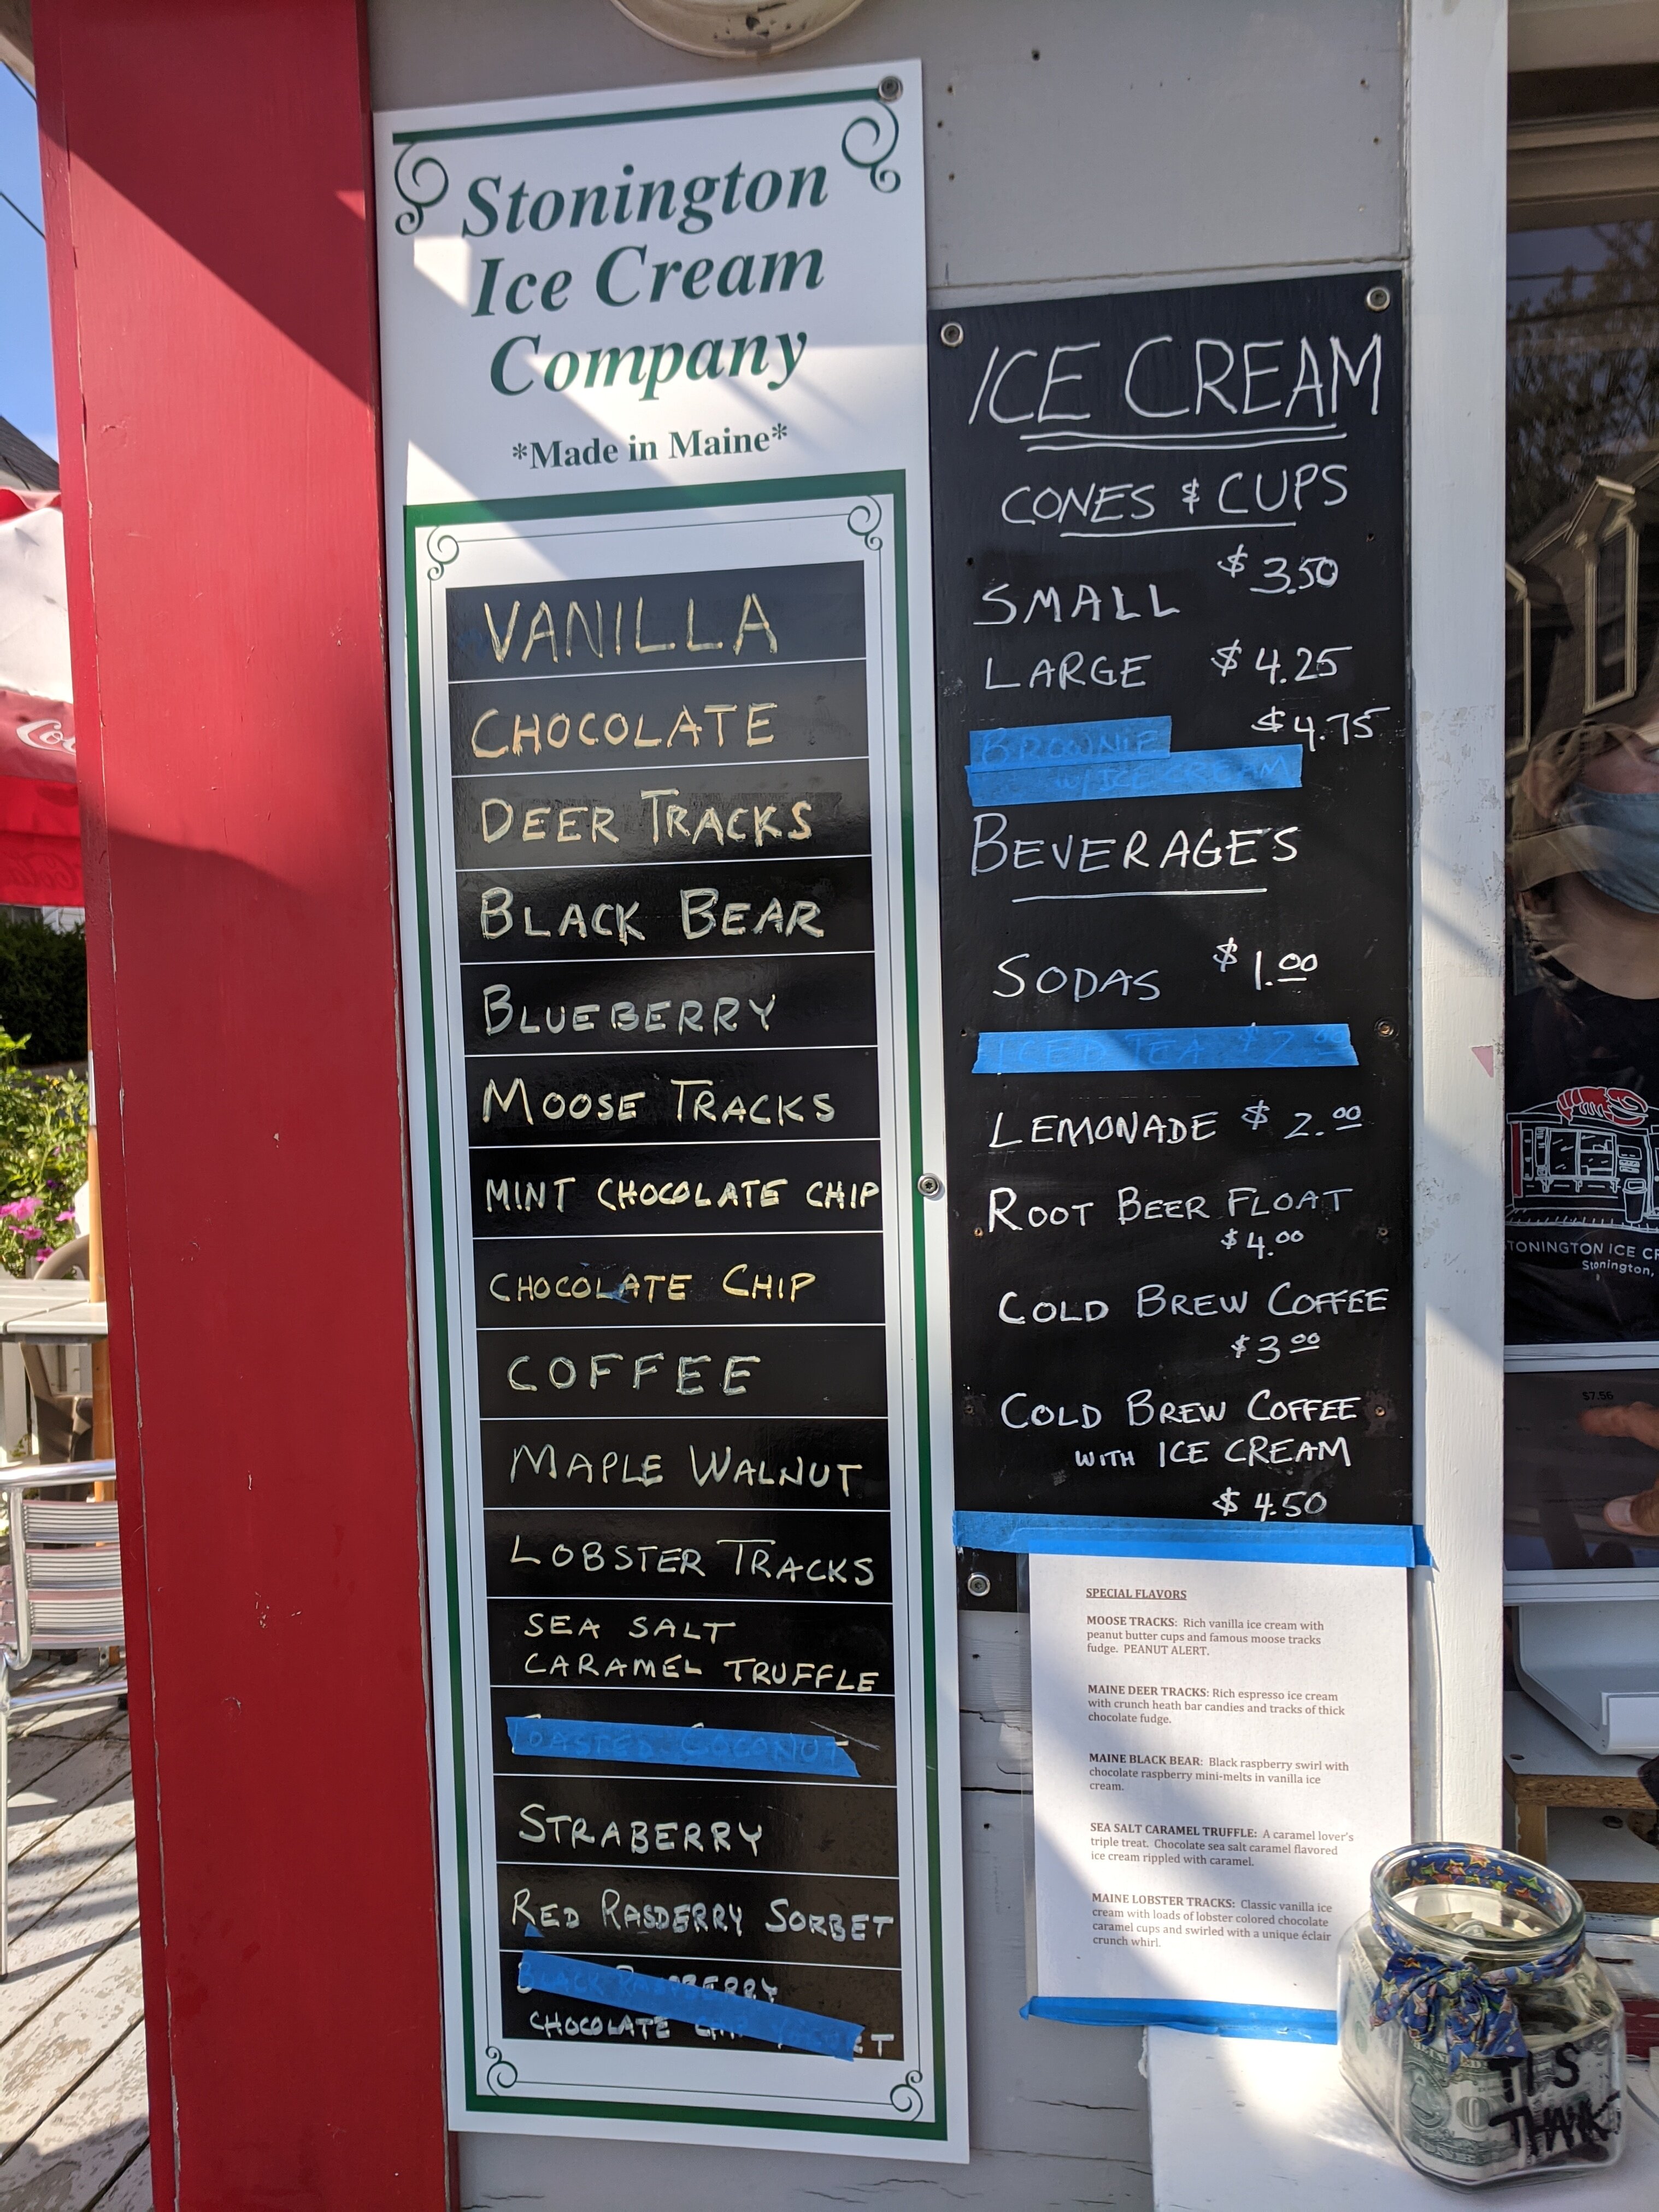 Stonington
Ice Cream
Company
*Made in Maine*
VANILLA
CHOCOLATE
DEER TRACKS
BLACK BEAR
BLUEBERRY
MOOSE TRACKS
MINT CHOCOLATE CHIP
CHOCOLATE CHIP
COFFEE
MAPLE WALNUT
LOBSTER TRACKS
SEA SALT
CARAMEL TRUFFLE
TOASTED COCONUT
STRABERRY
RED RASDERRY SORBET
BLACK RASPBERRY
CHOCOLATE CHIP
ICE CREAM
CONES & CUPS
SMALL $3.50
LARGE $4.25
BROWNIE $4.75
W/ICE CREAM
BEVERAGES
SODAS $1.00
ICED TEA $2.00
LEMONADE $2.00
ROOT BEER FLOAT
$4.00
COLD BREW COFFEE
$3.00
COLD BREW COFFEE
WITH ICE CREAM
$4.50
SPECIAL FLAVORS
MOOSE TRACKS: Rich vanilla ice cream with
peanut butter cups and famous moose tracks
fudge. PEANUT ALERT.
MAINE DEER TRACKS: Rich espresso ice cream
with crunch heath bar candies and tracks of thick
chocolate fudge.
MAINE BLACK BEAR: Black raspberry swirl with
chocolate raspberry mini-melts in vanilla ice
cream.
SEA SALT CARAMEL TRUFFLE: A caramel lover's
triple treat. Chocolate sea salt caramel flavored
ice cream rippled with caramel.
MAINE LOBSTER TRACKS: Classic vanilla ice
cream with loads of lobster colored chocolate
caramel cups and swirled with a unique éclair
crunch whirl.
TONINGTON ICE CR
Stonington,
$7.56
TIPS
THANK